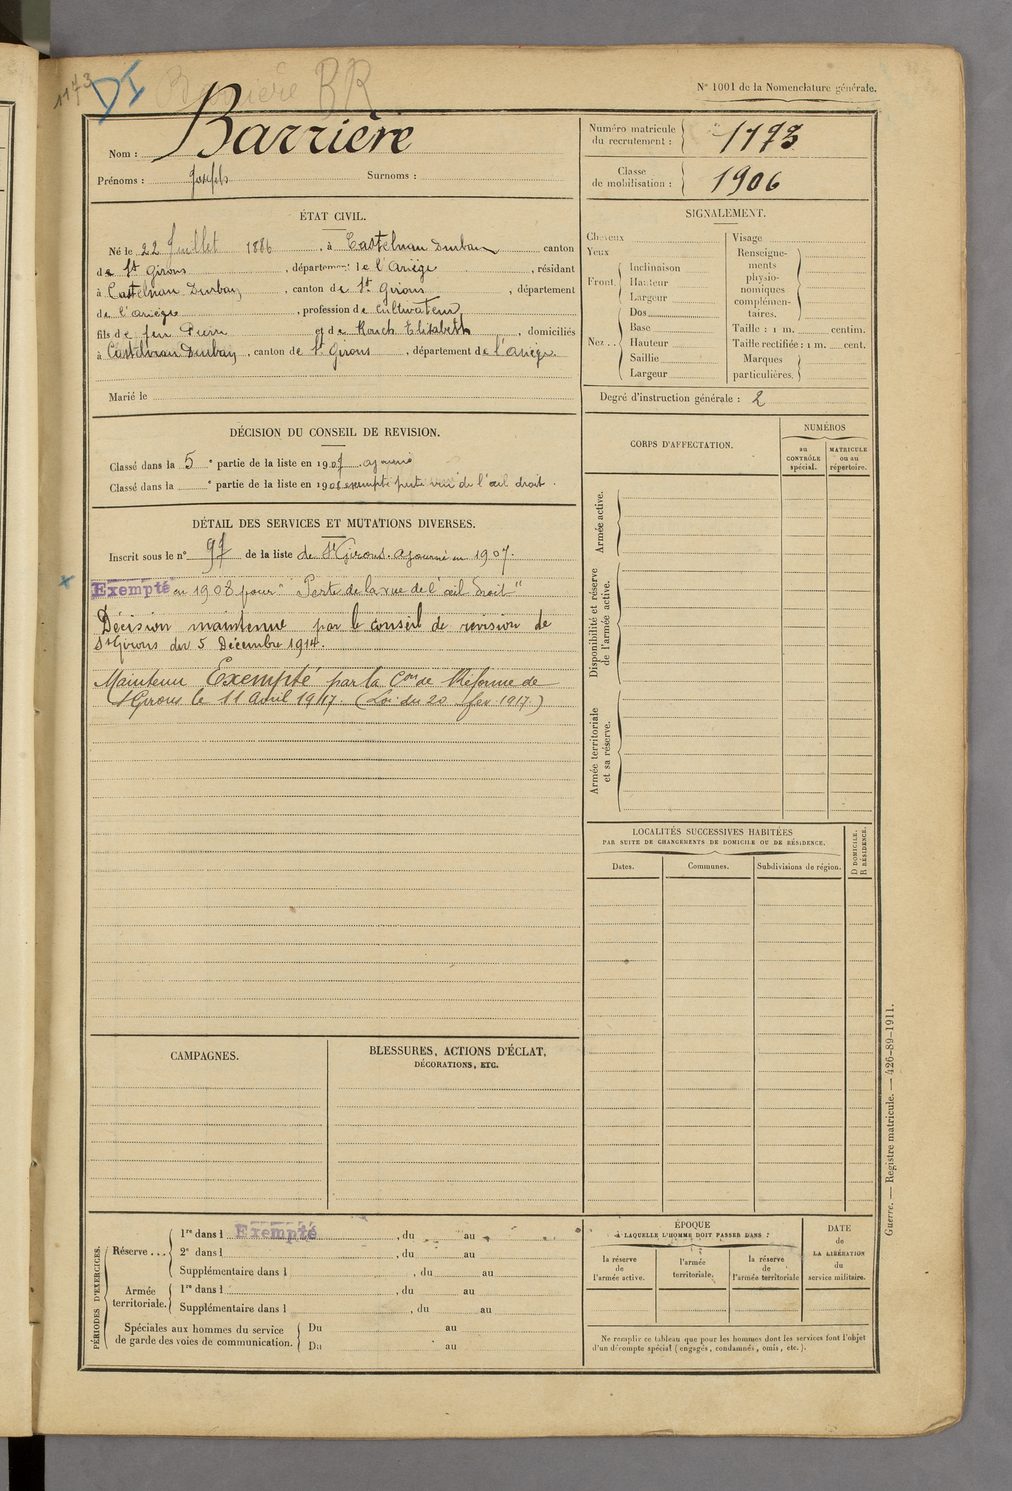 1173 DI Barrière BR
N° 1001 de la Nomenclature générale.
Nom : Barrière
Prénoms : Joseph Surnoms :
Numéro matricule du recrutement : 1173
Classe de mobilisation : 1906
ÉTAT CIVIL.
Né le 22 Juillet 1886, à Castelnau Durban canton
de St Girons, département de l'Ariège, résidant
à Castelnau Durban, canton de St Girons, département
de l'Ariège, profession de Cultivateur,
fils de feu Pierre et de Rouch Elisabeth, domiciliés
à Castelnau Durban, canton de St Girons, département de l'Ariège.
Marié le
SIGNALEMENT.
Cheveux
Yeux
Front. Inclinaison
Hauteur
Largeur
Nez .. Dos
Base
Hauteur
Saillie
Largeur
Visage
Renseignements physionomiques complémentaires.
Taille : 1 m. centim.
Taille rectifiée : 1 m. cent.
Marques particulières.
Degré d'instruction générale : 2
DÉCISION DU CONSEIL DE REVISION.
Classé dans la 5e partie de la liste en 1907 ajourné
Classé dans la e partie de la liste en 1908 exempté perte vue de l'œil droit.
DÉTAIL DES SERVICES ET MUTATIONS DIVERSES.
Inscrit sous le n° 97 de la liste de St Girons. Ajourné en 1907.
Exempté en 1908 pour "Perte de la vue de l'œil droit"
Décision maintenue par le conseil de revision de
St Girons du 5 Décembre 1914.
Maintenu Exempté par la Con de Réforme de
St Girons le 11 avril 1917. (Loi du 20 fev 1917.)
CORPS D'AFFECTATION.
NUMÉROS
au CONTRÔLE spécial.
MATRICULE ou au répertoire.
Armée active.
Disponibilité et réserve de l'armée active.
Armée territoriale et sa réserve.
LOCALITÉS SUCCESSIVES HABITÉES
PAR SUITE DE CHANGEMENTS DE DOMICILE OU DE RÉSIDENCE.
Dates. Communes. Subdivisions de région.
D DOMICILE.
R RÉSIDENCE.
CAMPAGNES.
BLESSURES, ACTIONS D'ÉCLAT,
DÉCORATIONS, ETC.
PÉRIODES D'EXERCICES.
Réserve ... 1re dans l Exempté, du au
2e dans l, du au
Supplémentaire dans l, du au
Armée territoriale. 1re dans l, du au
Supplémentaire dans l, du au
Spéciales aux hommes du service de garde des voies de communication. Du au
Du au
ÉPOQUE
À LAQUELLE L'HOMME DOIT PASSER DANS :
la réserve de l'armée active.
l'armée territoriale.
la réserve de l'armée territoriale
DATE de LA LIBÉRATION du service militaire.
Ne remplir ce tableau que pour les hommes dont les services font l'objet
d'un décompte spécial (engagés, condamnés, omis, etc.).
Guerre. — Registre matricule. — 426-89-1911.